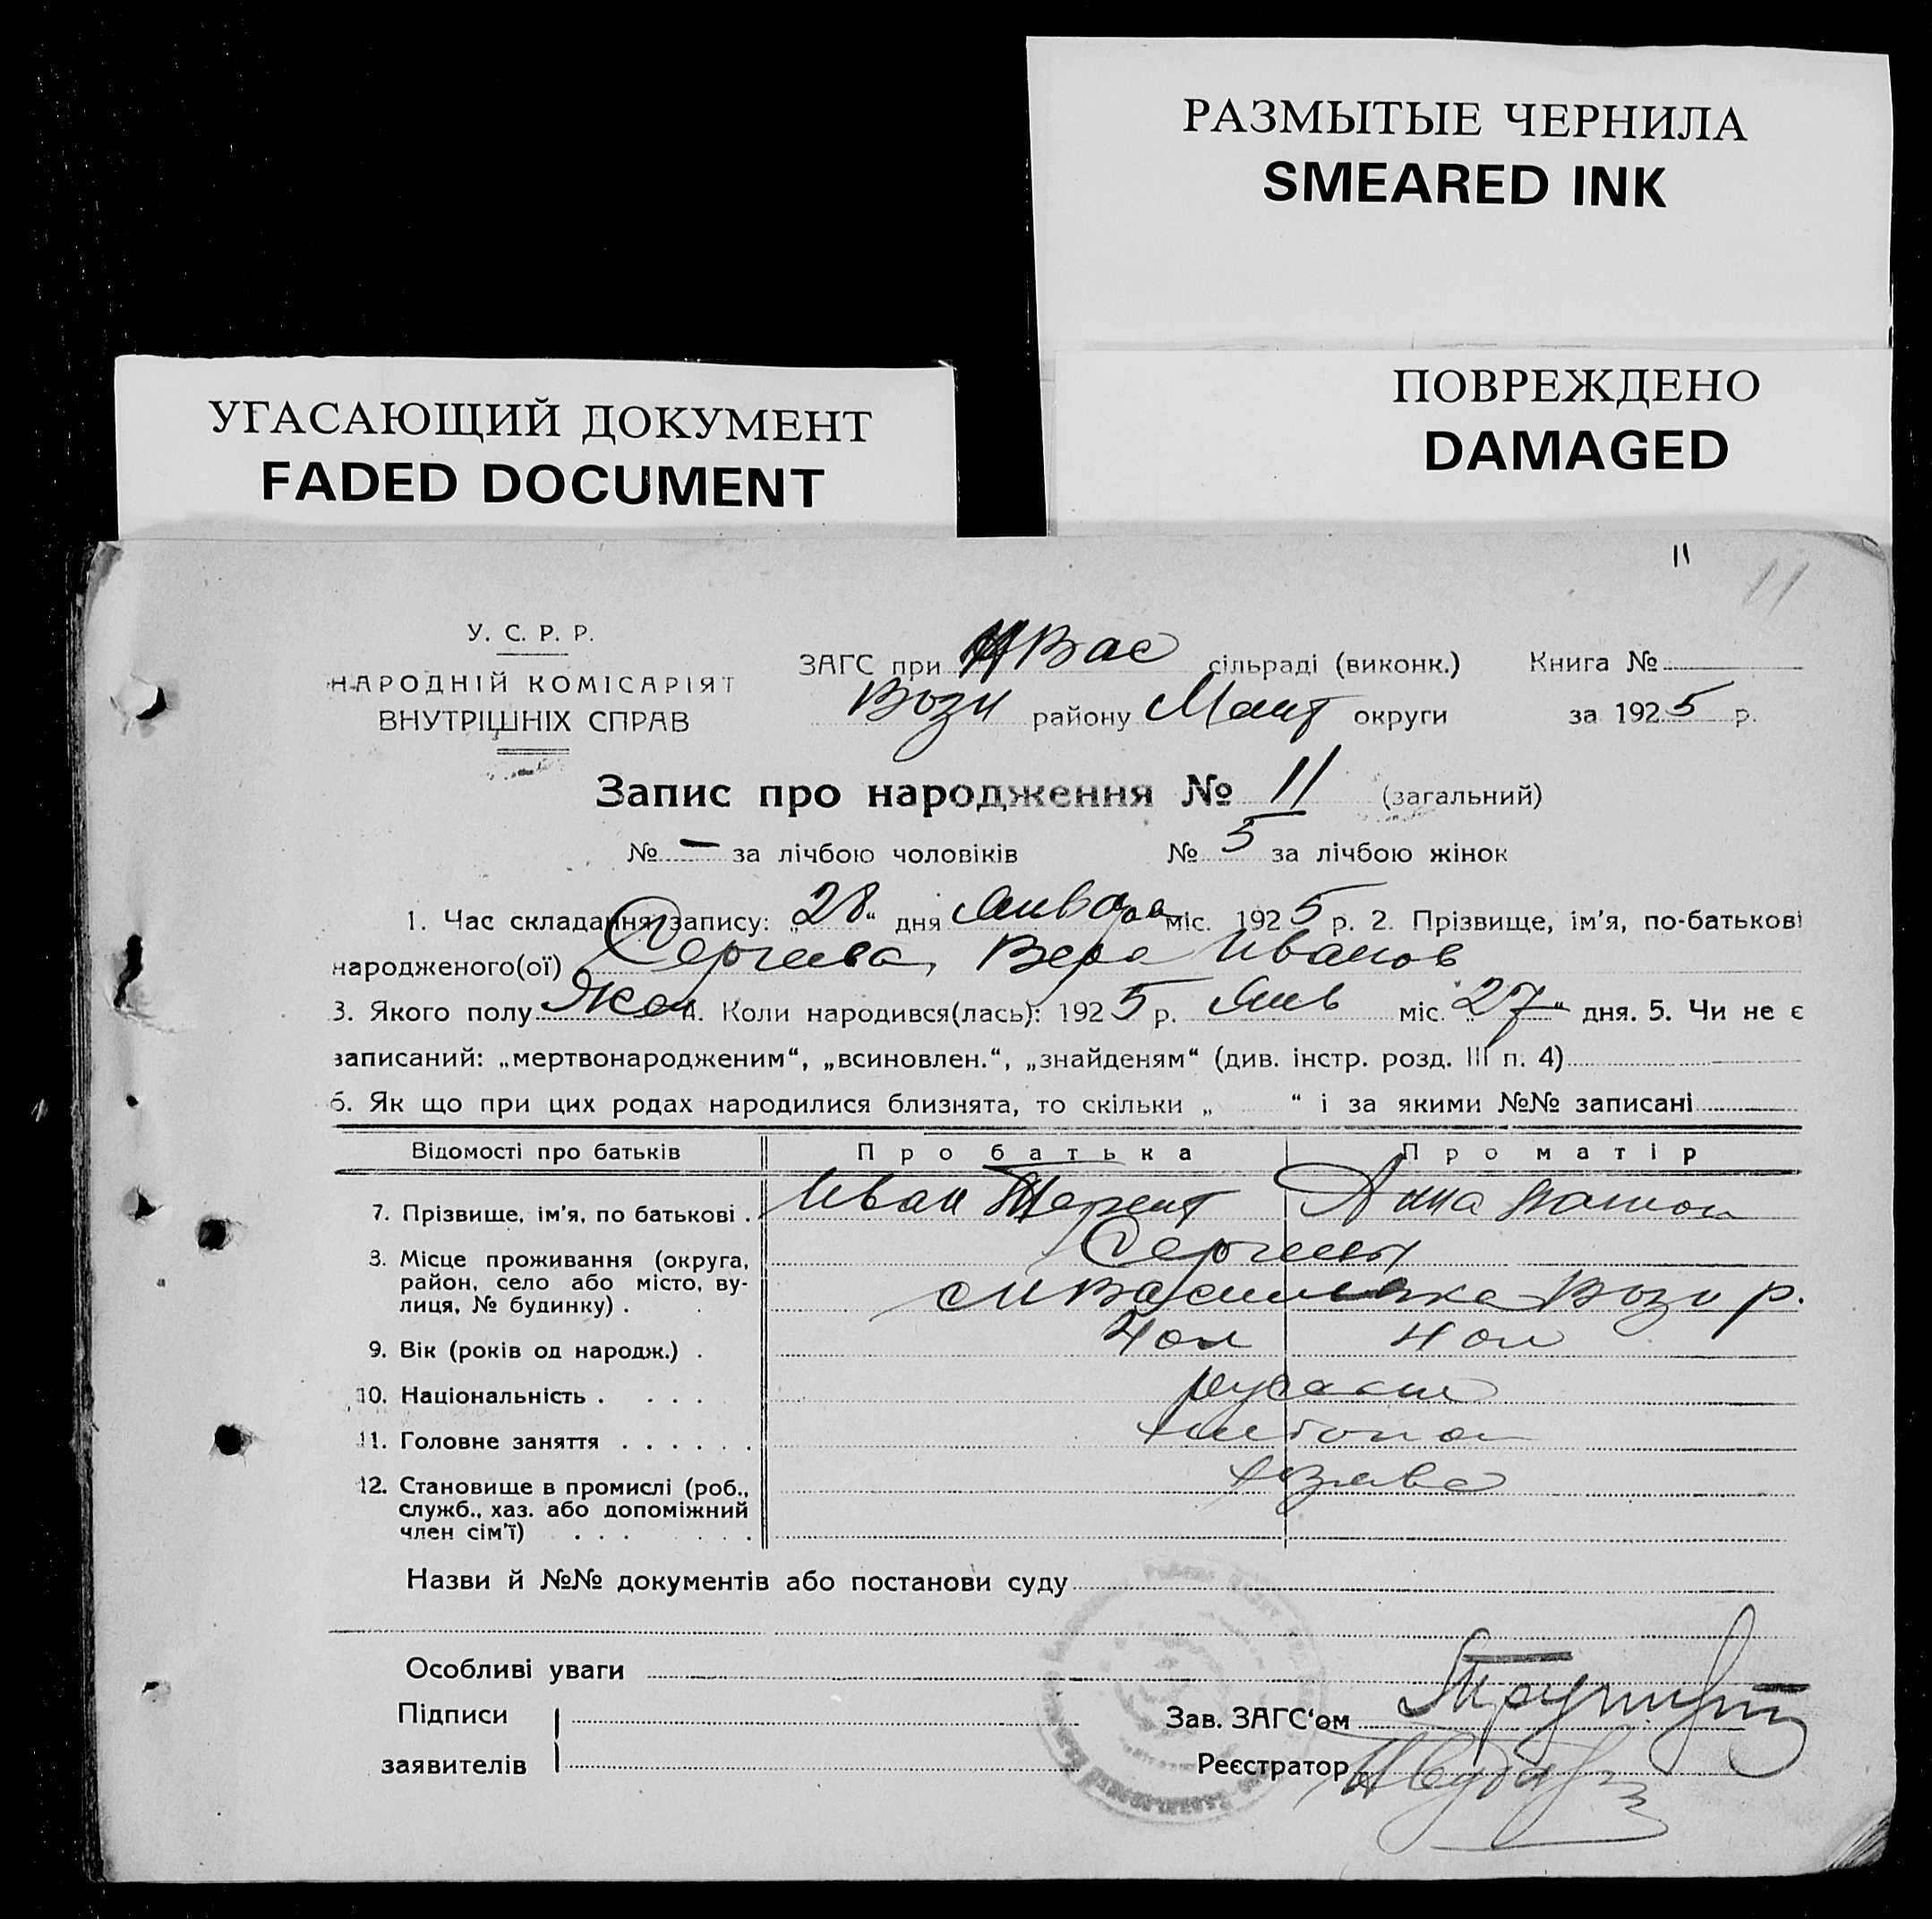 РАЗМЫТЫЕ ЧЕРНИЛА
SMEARED INK
ПОВРЕЖДЕНО
DAMAGED
УГАСАЮЩИЙ ДОКУМЕНТ
FADED DOCUMENT
11 11
У. С. Р. Р.
НАРОДНІЙ КОМІСАРІЯТ
ВНУТРІШНІХ СПРАВ
ЗАГС при НВас сільраді (виконк.) Книга №
Вози району округи за 1925 р.
Запис про народження № 11 (загальний)
№ — за лічбою чоловіків № 5 за лічбою жінок
1. Час складання запису: „28“ дня Января міс. 1925 р. 2. Прізвище, ім'я, по-батькові
народженого(ої) Сергеева Вера Иванов
3. Якого полу Жен 4. Коли народився(лась): 1925 р. Янв міс. „27“ дня. 5. Чи не є
записаний: „мертвонародженим“, „всиновлен.“, „знайденям“ (див. інстр. розд. III п. 4)
6. Як що при цих родах народилися близнята, то скільки „ “ і за якими №№ записані
Відомості про батьків Про батька Про матір
7. Прізвище, ім'я, по батькові . Иван Терент Анна
Сергеевы
3. Місце проживання (округа,
район, село або місто, ву-
лиця, № будинку) . Вози р.
9. Вік (років од народж.) .
10. Національність . . . .
11. Головне заняття . . . . . .
12. Становище в промислі (роб.,
служб., хаз. або допоміжний
член сім'ї) . . . .
Назви й №№ документів або постанови суду
Особливі уваги
Підписи
заявителів
Зав. ЗАГС‘ом
Реєстратор